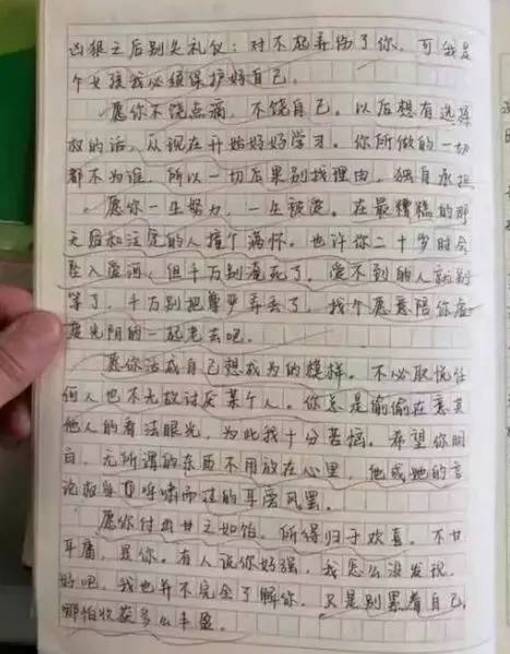 凶狠之后别失礼仪：对不起弄伤了你，可我是
个女孩我必须保护好自己。
愿你不饶点滴，不饶自己。以后想有选择
权的话，从现在开始好好学习。你所做的一切
都不为谁，所以一切后果别找理由，独自承担
。愿你一生努力，一生被爱。在最糟糕的那
天后和注定的人撞个满怀。也许你二十岁时会
坠入爱河，但千万别淹死了，爱不到的人就别
等了，千万别把尊严弄丢了，找个愿意陪你虚
度光阴的一起老去吧。
愿你活成自己想成为的模样。不必取悦任
何人也不无故讨厌某个人。你总是偷偷在意其
他人的看法眼光，为此我十分苦恼。希望你明
白，无所谓的东西不用放在心里，他或她的言
论权当耳旁风罢。
愿你付出甘之如饴，所得归于欢喜。不甘
平庸，是你。有人说你好强，我怎么没发现，
好吧，我也并不完全了解你，只是别累着自己，
哪怕收获多么丰盈。